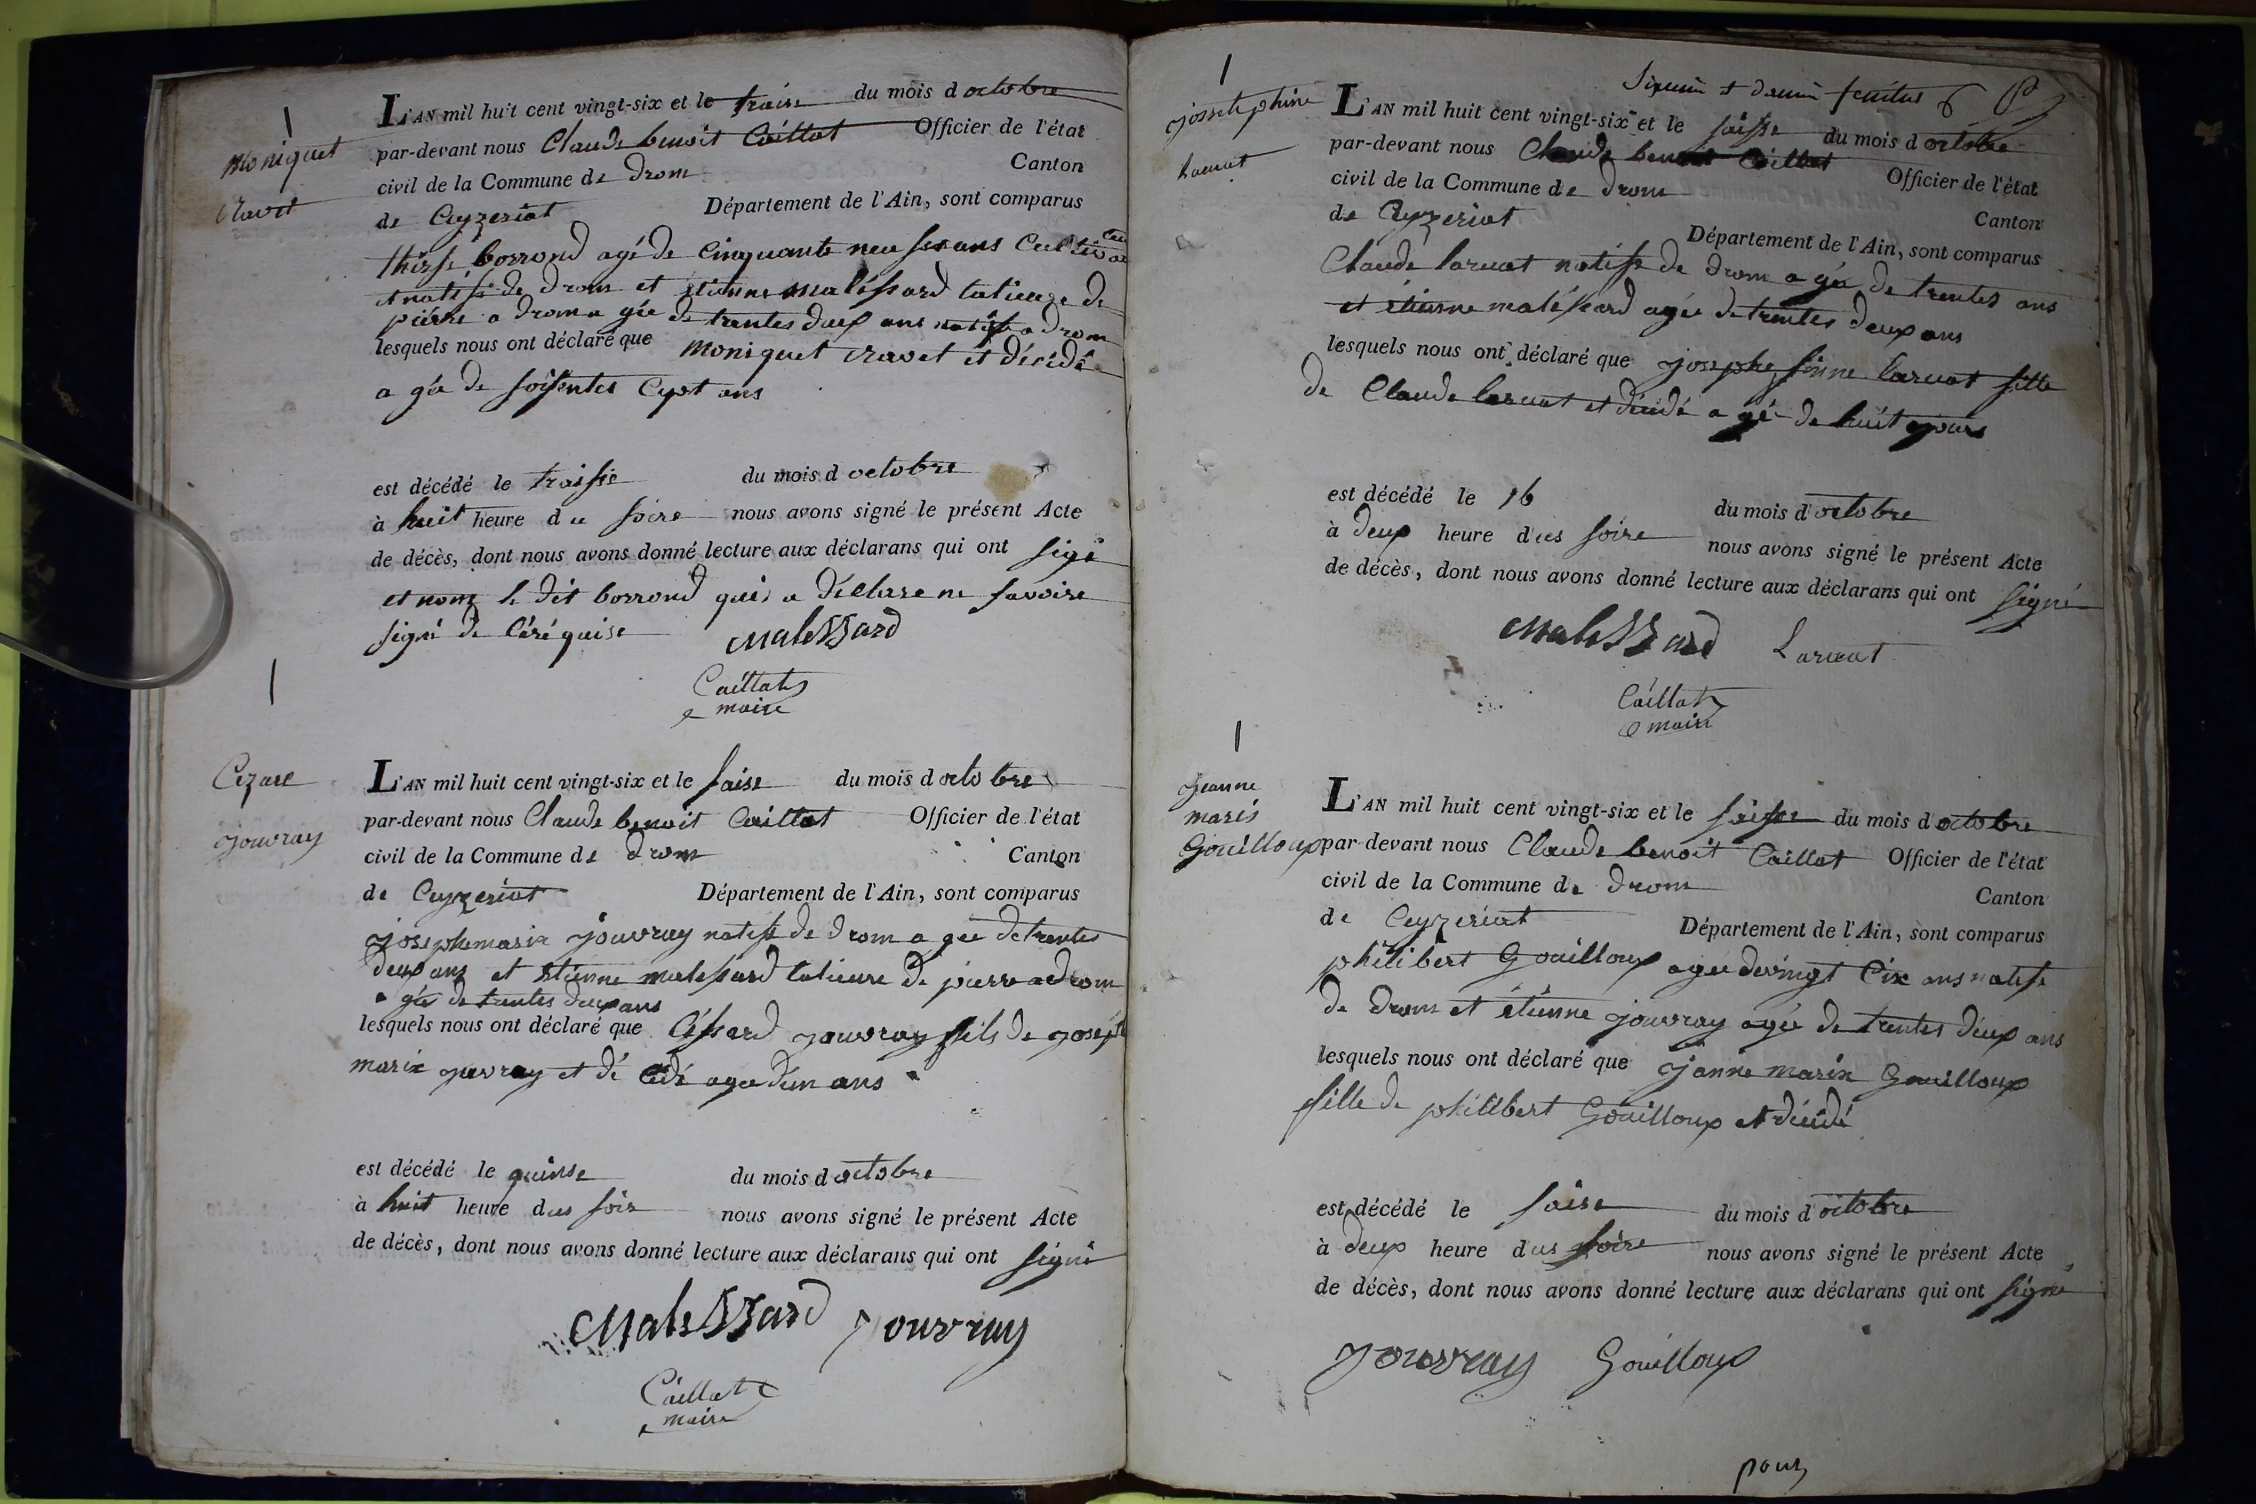 Moniquet
ravet
L'AN mil huit cent vingt-six et le traise du mois d octobre
par-devant nous Claude benoit Caillat Officier de l'état
civil de la Commune de Drom Canton
de Ceyzeriat Département de l'Ain, sont comparus
borrond agé de Cinquante neu ans
et natife de Drom et étienne malessard talieure de
pierre a drom a gée de trentes deux ans natife a drom
lesquels nous ont déclaré que moniquet ravet et décédé
a gée de soisentes ans
est décédé le traisse du mois d octobre
à huit heure du soire nous avons signé le présent Acte
de décès, dont nous avons donné lecture aux déclarans qui ont sigé
et nom le dit borrond qui a déclare ne savoire
signé de
Malessard
Caillat
maire
Cezare
jouvray
L'AN mil huit cent vingt-six et le saise du mois d octobre
par-devant nous Claude benoit Caillat Officier de l'état
civil de la Commune de Drom Canton
de Ceyzeriat Département de l'Ain, sont comparus
josephe marie jouvray natife de drom a gée de trentes
deux ans et étienne malessard talieure de pierre a drom
a gée de trentes deux ans
lesquels nous ont déclaré que Céssard jouvray fils de joseph
marie jouvray et dé cédé agée dun ans
est décédé le quinse du mois d octobre
à huit heure dus soir nous avons signé le présent Acte
de décès, dont nous avons donné lecture aux déclarans qui ont signé
Malessard jouvray
Caillat
maire
6
jossephine
Laruat
L'AN mil huit cent vingt-six et le saisse du mois d octobre
par-devant nous Claude benoit Caillat Officier de l'état
civil de la Commune de Drom Canton
de Ceyzeriat Département de l'Ain, sont comparus
Claude laruat natife de drom a gée de trentes ans
et étienne maléssard agée de trentes deux ans
lesquels nous ont déclaré que josephe finne laruat fille
de Claude laruat et décidé a gé de huit jours
est décédé le 16 du mois d'octobre
à deux heure dus soire nous avons signé le présent Acte
de décès, dont nous avons donné lecture aux déclarans qui ont signé
Malessard Laruat
Caillat
maire
jeanne
marie
Gouilloux
L'AN mil huit cent vingt-six et le saisse du mois d octobre
par-devant nous Claude benoit Caillat Officier de l'état
civil de la Commune de Drom Canton
de Ceyzeriat Département de l'Ain, sont comparus
philibert Gouilloux agée de vingt Cix ans natife
de Drom et étienne jouvray agée de trentes deux ans
lesquels nous ont déclaré que janne marie Gouilloux
fille de philibert Gouilloux et décidé
est décédé le saise du mois d'octobre
à deux heure dus soire nous avons signé le présent Acte
de décès, dont nous avons donné lecture aux déclarans qui ont signé
jouvray Gouilloux
pour